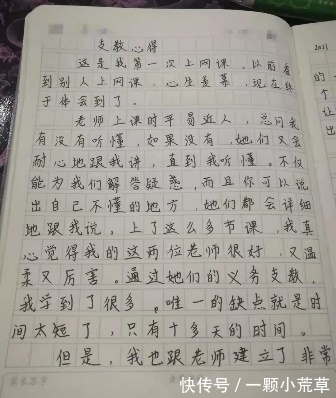 支教心得
这是我第一次上网课，以前看
到别人上网课，心生羡慕，现在终
于体会到了。
老师上课时平易近人，总问我
有没有听懂，如果没有，她们又会
耐心地跟我讲，直到我听懂。不仅
能为我们解答疑惑，而且你可以说
出自己不懂的地方，她们都会详细
地跟我说，上了这么多节课，我真
心觉得我的这两位老师很好，又温
柔又厉害。通过她们的义务支教，
我学到了很多。唯一的缺点就是时
间太短了，只有十多天的时间。
但是，我也跟老师建立了非常
家长签字
2021
的
个
让
出
快传号/一颗小荒草